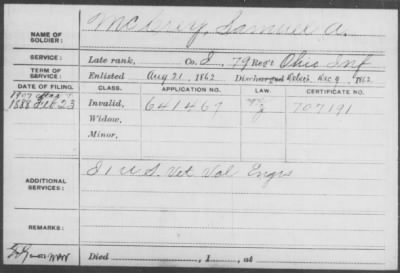 NAME OF SOLDIER: Samuel A.
SERVICE: Late rank, Co. I, 79 Reg't Ohio Inf
TERM OF SERVICE: Enlisted Aug 21, 1862 Discharged Dec 9, 1862
DATE OF FILING. CLASS. APPLICATION NO. LAW. CERTIFICATE NO.
1907
1888 Feb 23 Invalid, 641467 707191
Widow,
Minor,
ADDITIONAL SERVICES: I 1 U.S. Vet Vol Engrs
REMARKS:
Died , 1 , at